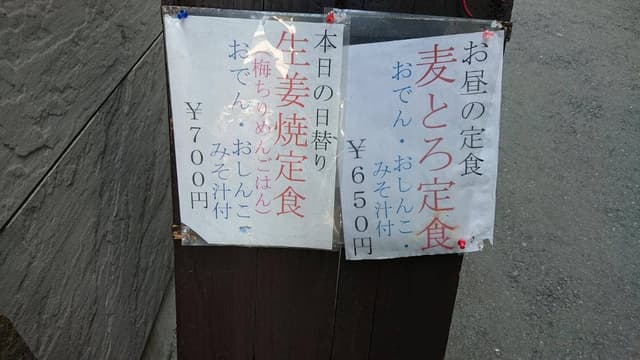 お昼の定食
麦とろ定食
おでん・おしんこ・
みそ汁付
￥650円
本日の日替り
生姜焼定食
(梅ちりめんごはん)
おでん・おしんこ
みそ汁付
￥700円